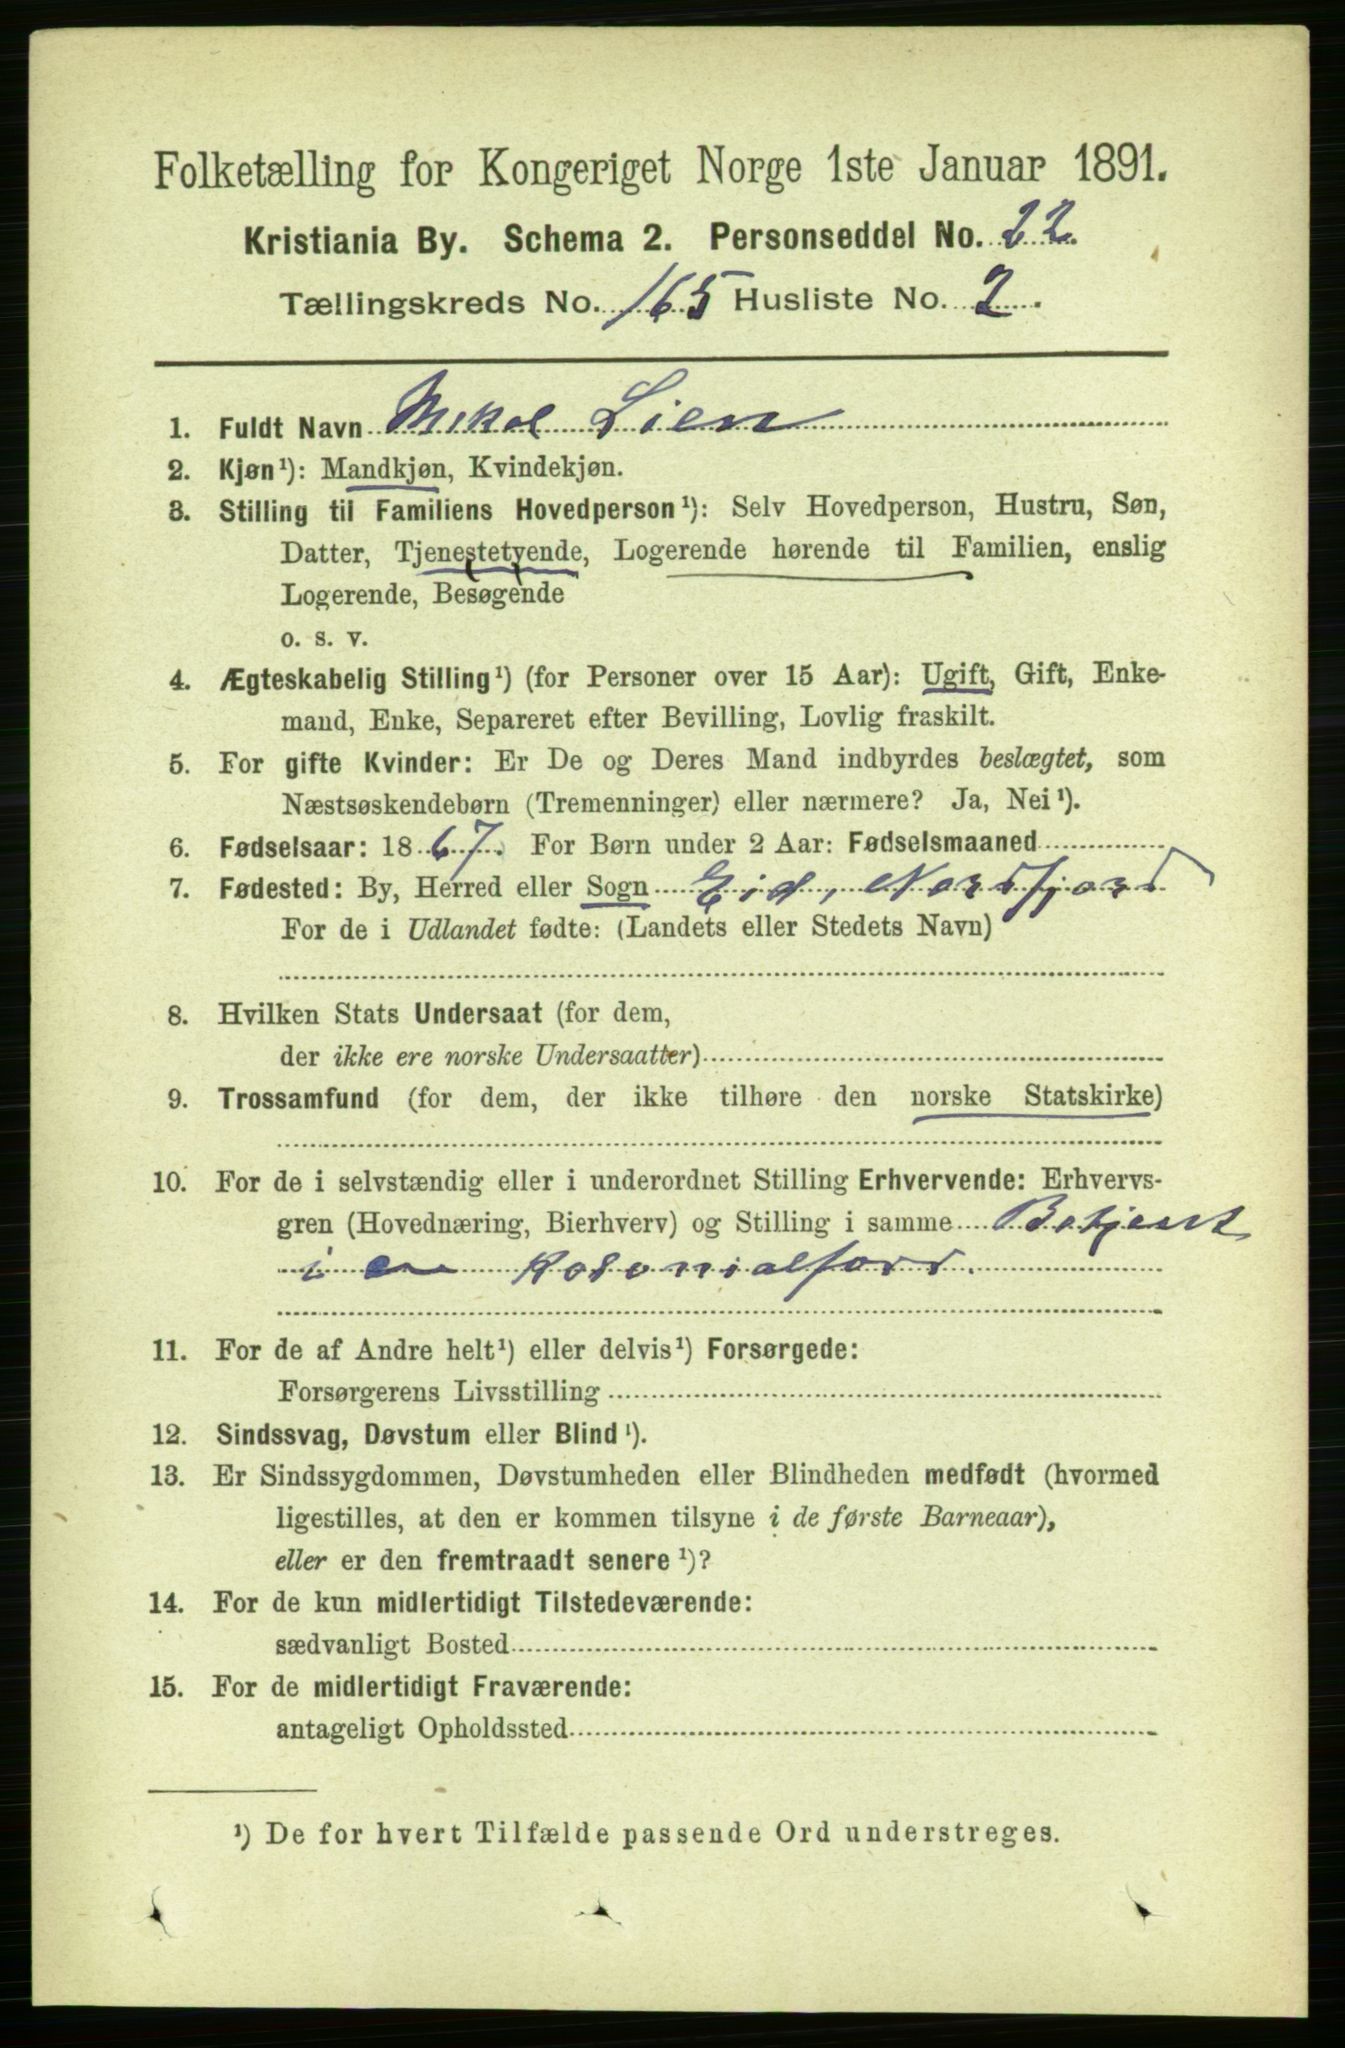 Folketælling for Kongeriget Norge 1ste Januar 1891.
Kristiania By. Schema 2. Personseddel No. 22.
Tællingskreds No. 165 Husliste No. 2.
1. Fuldt Navn Mikal Lien
2. Kjøn¹): Mandkjøn, Kvindekjøn.
3. Stilling til Familiens Hovedperson¹): Selv Hovedperson, Hustru, Søn,
Datter, Tjenestetyende, Logerende hørende til Familien, enslig
Logerende, Besøgende
o. s. v.
4. Ægteskabelig Stilling¹) (for Personer over 15 Aar): Ugift, Gift, Enke-
mand, Enke, Separeret efter Bevilling, Lovlig fraskilt.
5. For gifte Kvinder: Er De og Deres Mand indbyrdes beslægtet, som
Næstsøskendebørn (Tremenninger) eller nærmere? Ja, Nei¹).
6. Fødselsaar: 1867. For Børn under 2 Aar: Fødselsmaaned
7. Fødested: By, Herred eller Sogn Eid, Nordfjord
For de i Udlandet fødte: (Landets eller Stedets Navn)
8. Hvilken Stats Undersaat (for dem,
der ikke ere norske Undersaatter)
9. Trossamfund (for dem, der ikke tilhøre den norske Statskirke)
10. For de i selvstændig eller i underordnet Stilling Erhvervende: Erhvervs-
gren (Hovednæring, Bierhverv) og Stilling i samme Betjent
i en Kolonialforr.
11. For de af Andre helt¹) eller delvis¹) Forsørgede:
Forsørgerens Livsstilling
12. Sindssvag, Døvstum eller Blind¹).
13. Er Sindssygdommen, Døvstumheden eller Blindheden medfødt (hvormed
ligestilles, at den er kommen tilsyne i de første Barneaar),
eller er den fremtraadt senere¹)?
14. For de kun midlertidigt Tilstedeværende:
sædvanligt Bosted
15. For de midlertidigt Fraværende:
antageligt Opholdssted
¹) De for hvert Tilfælde passende Ord understreges.